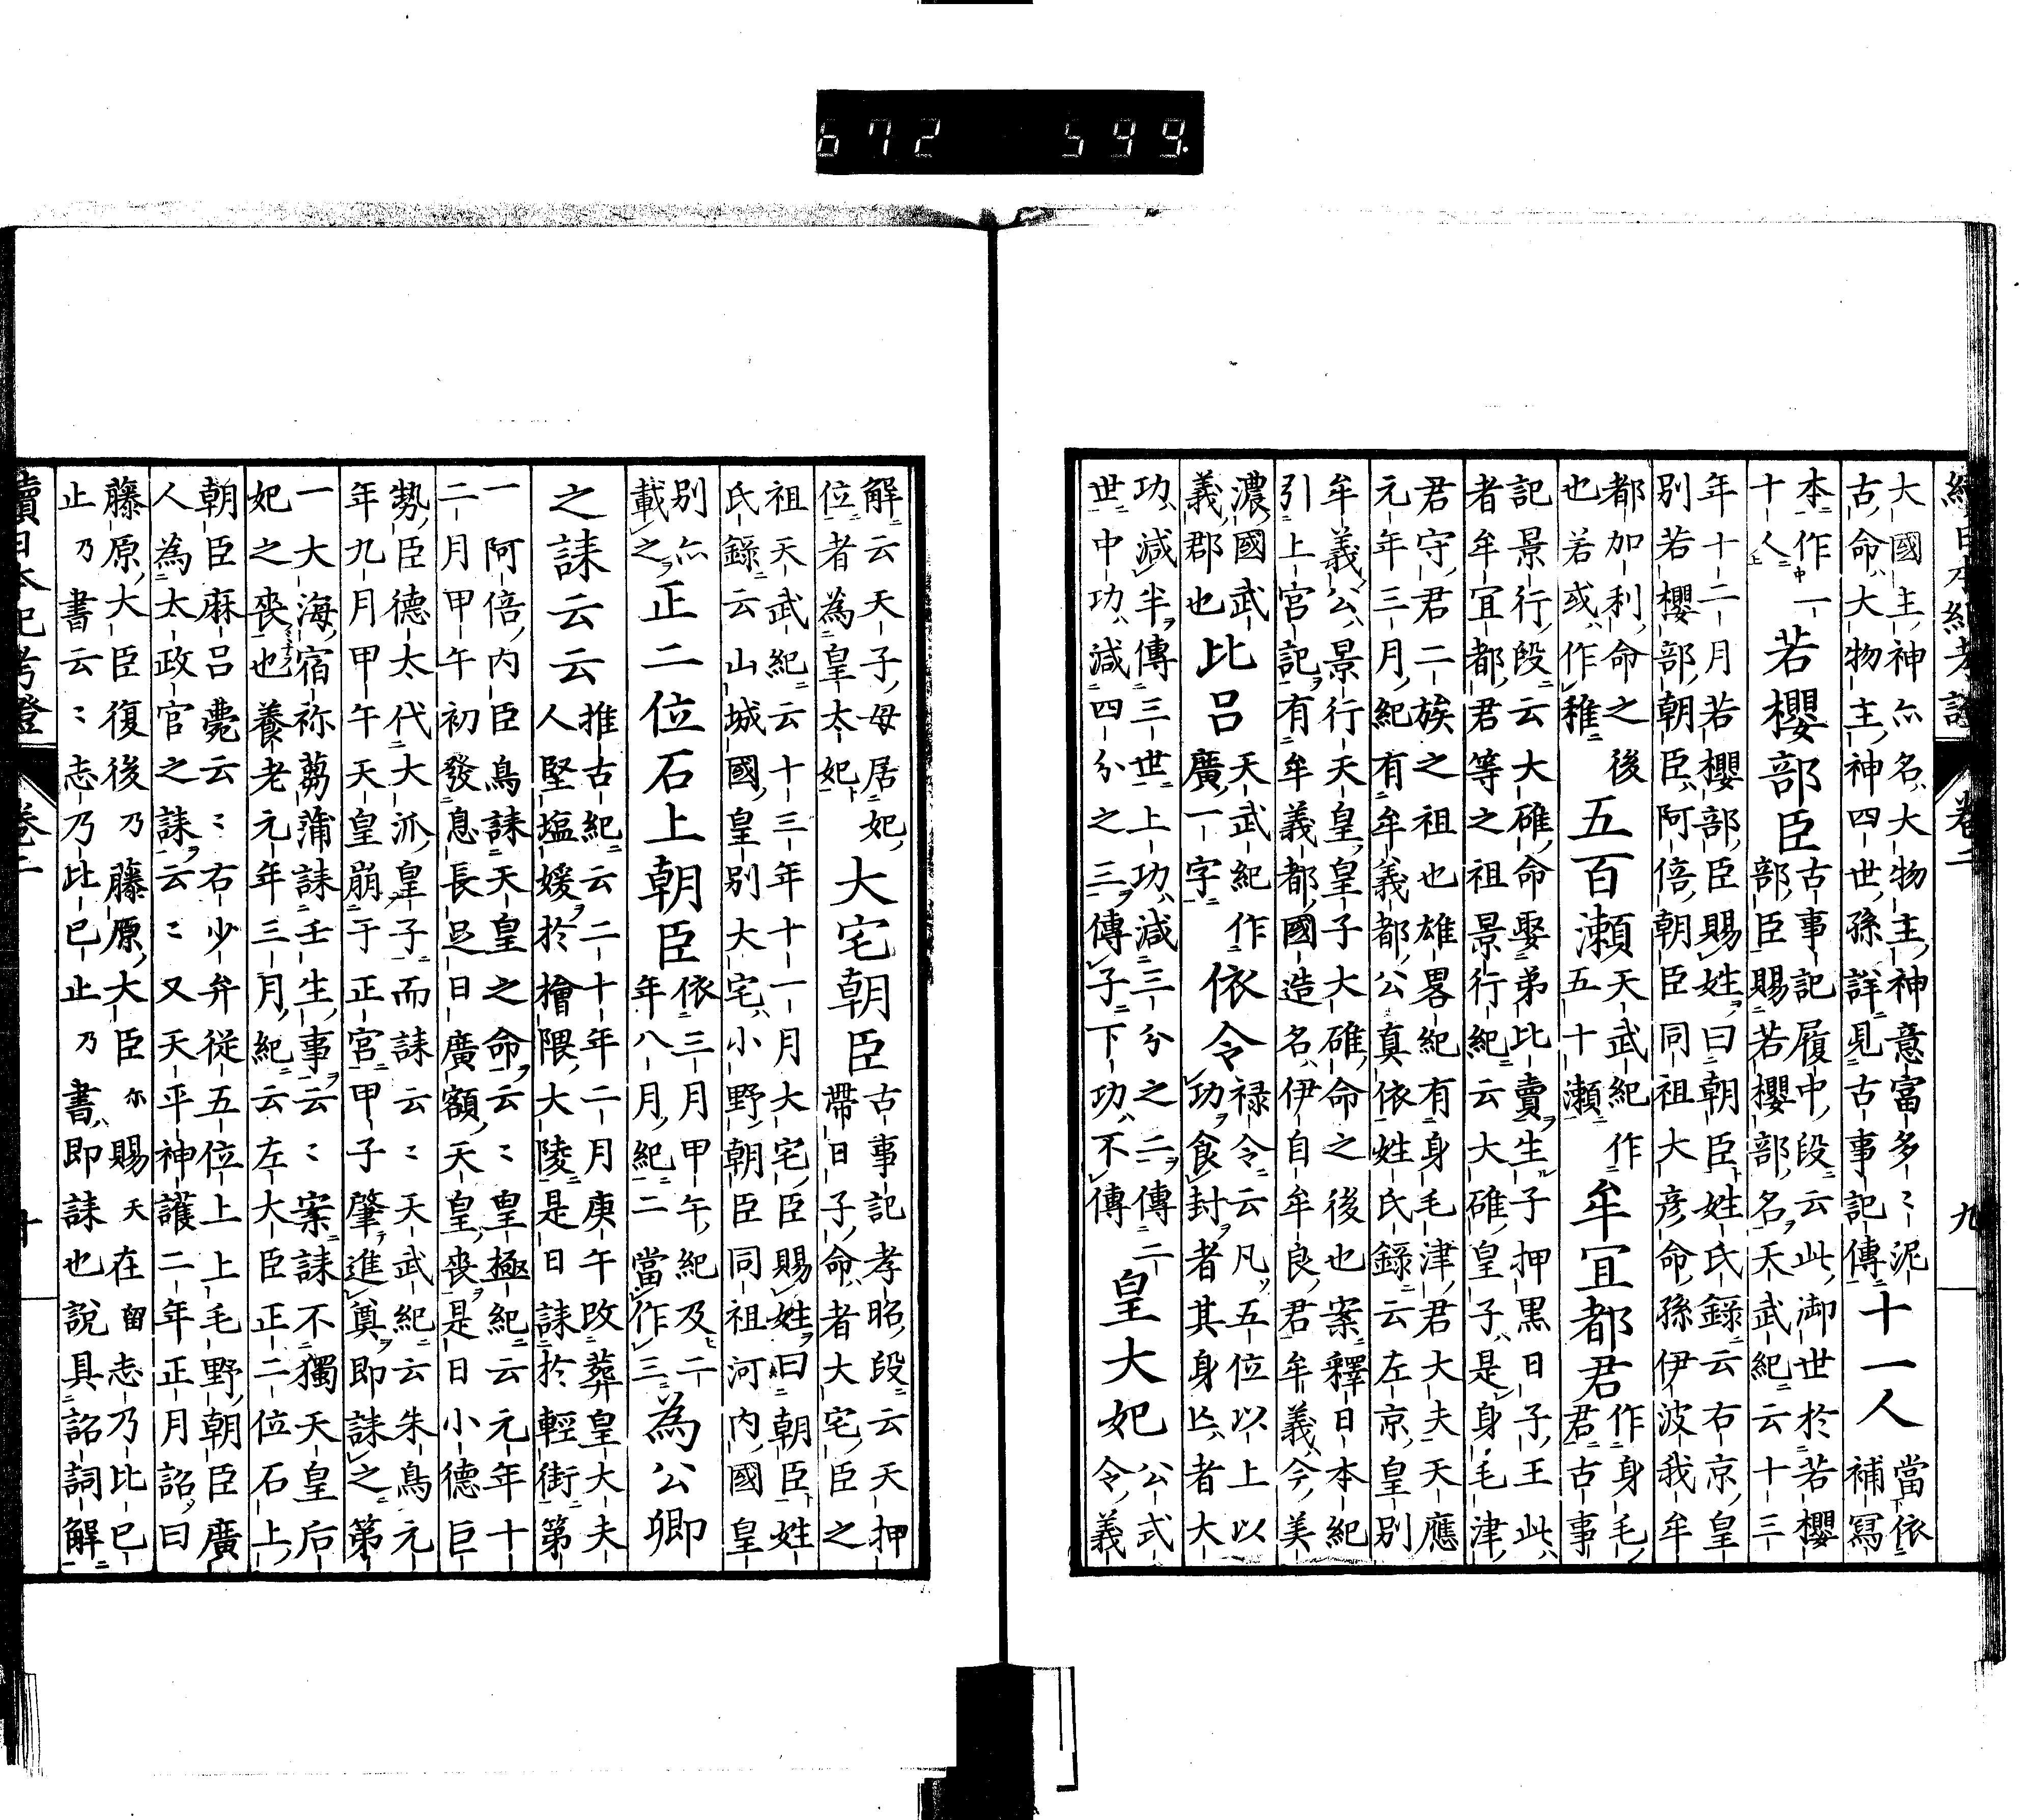 672 599.
續日本紀考證 卷二 九
大國主神亦名大物主神意富多々泥
古命大物主神四世孫詳見古事記傳 十一人 當依
補寫
本作中一
十人 若櫻部臣 古事記履中段云此御世於若櫻
部臣賜若櫻部名天武紀云十三
年十二月若櫻部臣賜姓曰朝臣姓氏錄云右京皇
別若櫻部朝臣阿倍朝臣同祖大彦命孫伊波我牟
都加利命之後
也若或作稚 五百瀬 天武紀作
五十瀬 牟宜都君 作身毛
君古事
記景行段云大碓命娶弟比賣生子押黒日子王此
者牟宜都君等之祖景行紀云大碓皇子是身毛津
君守君二族之祖也雄畧紀有身毛津君大夫天應
元年三月紀有牟義都公真依姓氏錄云左京皇別
牟義公景行天皇皇子大碓命之後也案釋日本紀
引上官記有牟義都國造名伊自牟良君牟義今美
濃國武
義郡也 比呂 天武紀作
廣一字 依令 禄令云凡五位以上以
功食封者其身亡者大
功減半傳三世上功減三分之二傳二
世中功減四分之三傳子下功不傳 皇大妃 公式
令義
解云天子母居妃
位者為皇太妃 大宅朝臣 古事記孝昭段云天押
帶日子命者大宅臣之
祖天武紀云十三年十一月大宅臣賜姓曰朝臣姓
氏錄云山城國皇別大宅小野朝臣同祖河内國皇
別亦
載之 正二位石上朝臣 依三月甲午紀及二
年八月紀二當作三 為公卿
之誄云云 推古紀云二十年二月庚午改葬皇大夫
人堅塩媛於檜隈大陵是日誄於輕街第
一阿倍内臣鳥誄天皇之命云々皇極紀云元年十
二月甲午初發息長足日廣額天皇喪是日小德巨
勢臣德太代大派皇子而誄云々天武紀云朱鳥元
年九月甲午天皇崩于正宮甲子肇進奠即誄之第
一大海宿祢蒭蒲誄壬生事云々案誄不獨天皇后
妃之喪也養老元年三月紀云左大臣正二位石上
朝臣麻呂薨云々右少弁従五位上上毛野朝臣廣
人為太政官之誄云々又天平神護二年正月詔曰
藤原大臣復後乃藤原大臣尓賜天在留志乃比己
止乃書云々志乃比己止乃書即誄也說具詔詞解
續日本紀考證 卷二 十